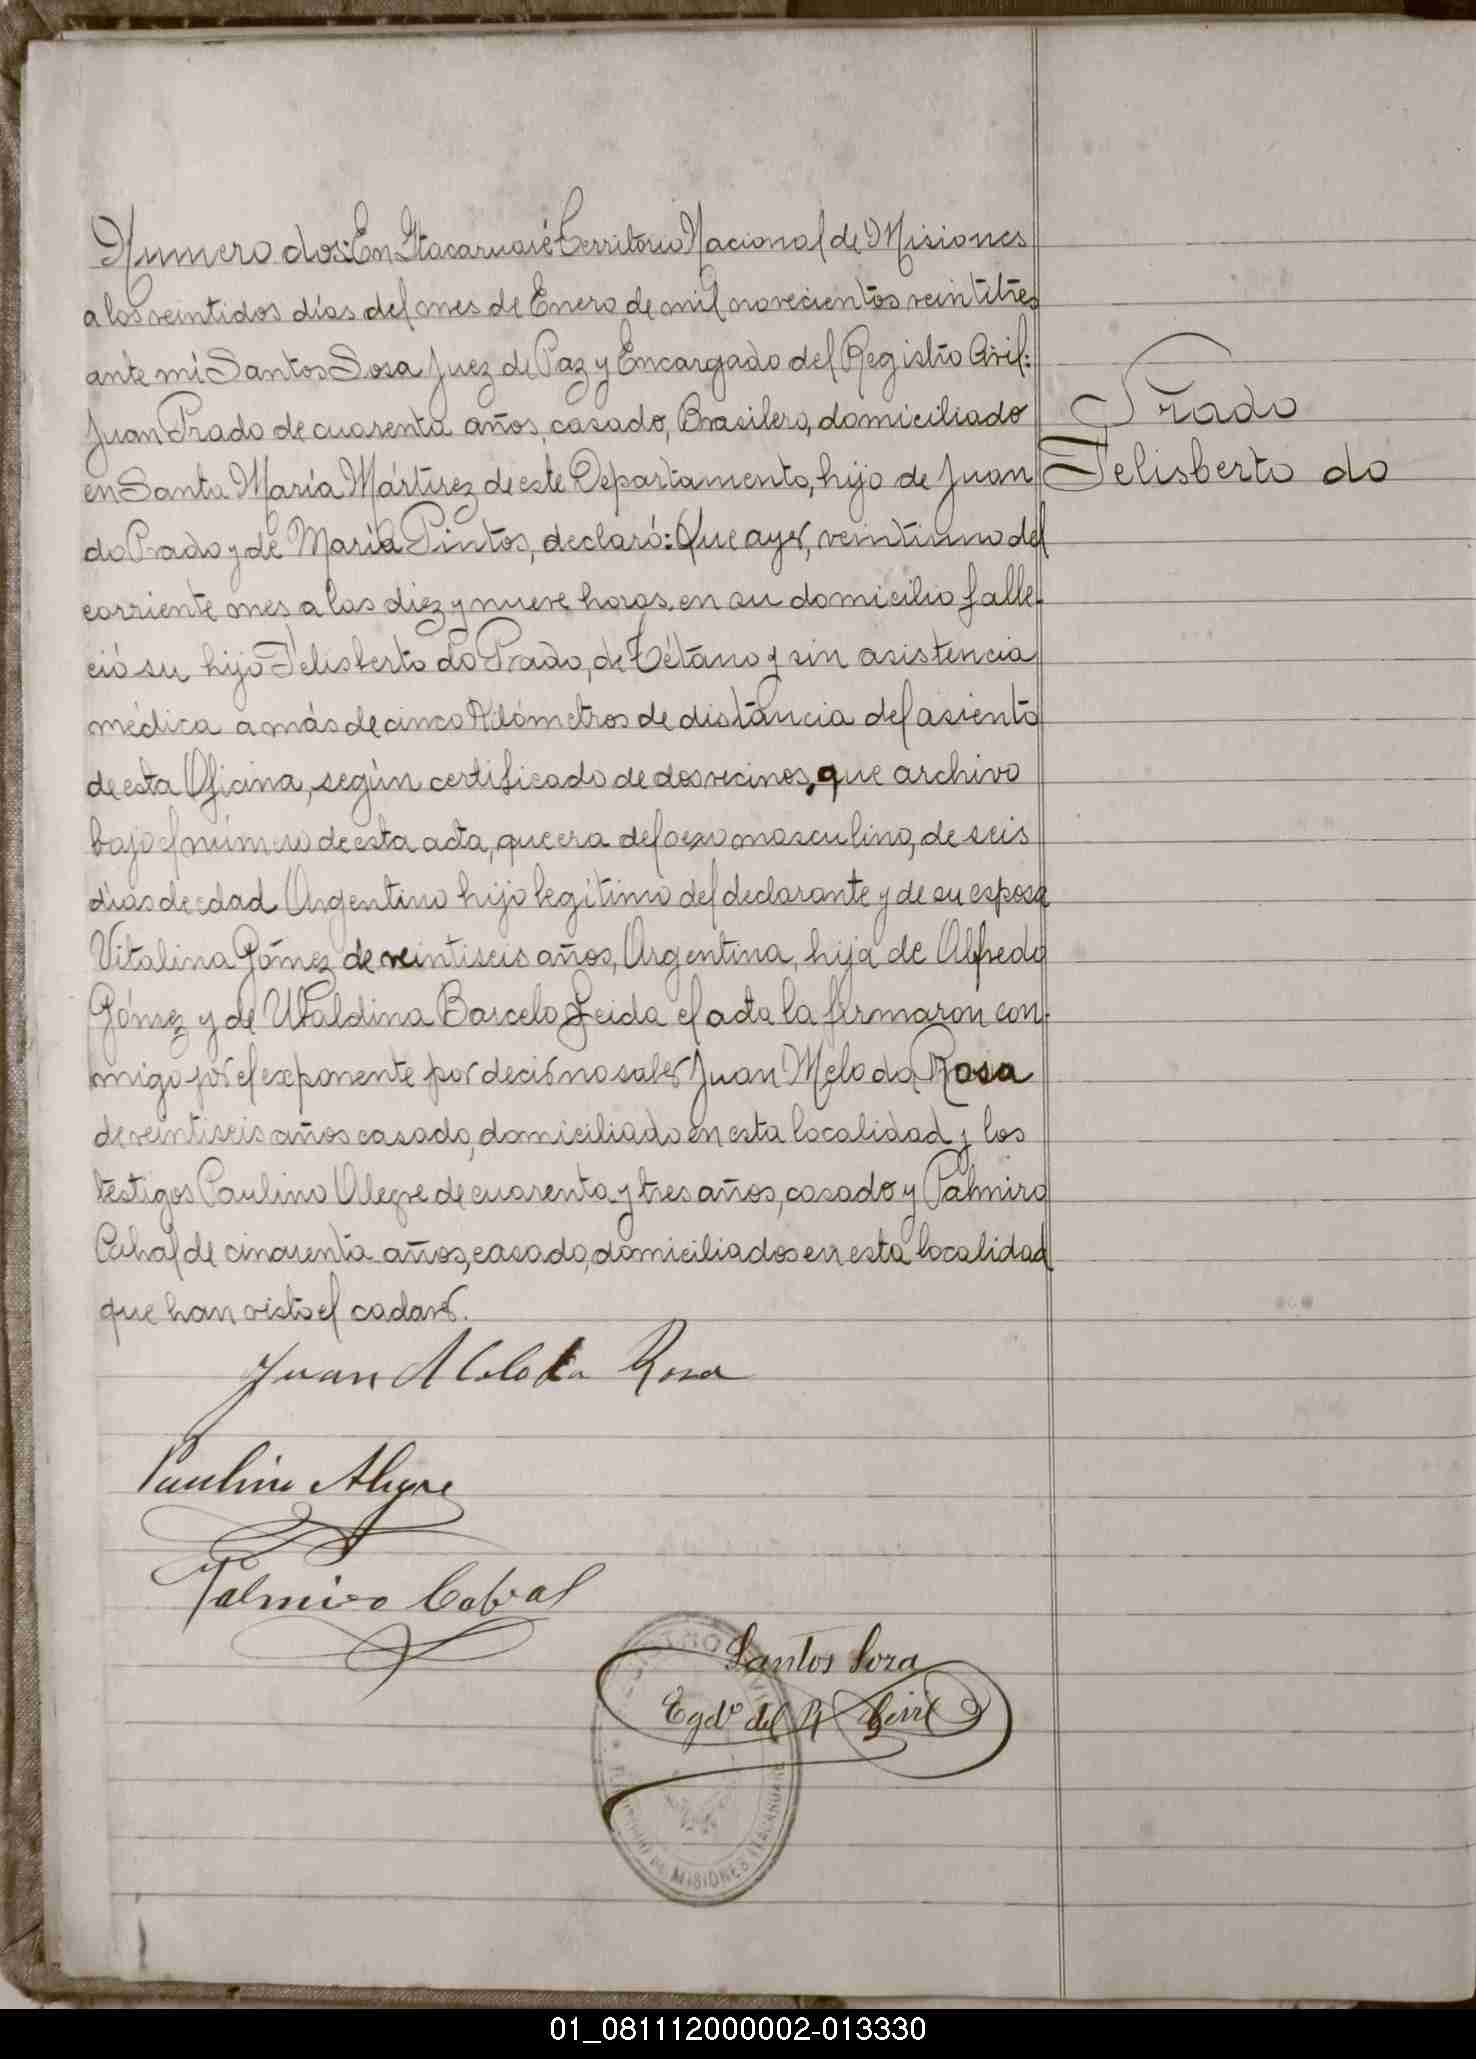 Numero dos: En Itacaruaré Territorio Nacional de Misiones
a los veintidos días del mes de Enero de mil novecientos veintitres
ante mí Santos Sosa Juez de Paz y Encargado del Registro Civil:
Juan Prado de cuarenta años, casado, Brasilero, domiciliado
en Santa María Mártirez de este Departamento, hijo de Juan
do Prado y de María Pintos, declaró: Que ayer, veintiuno del
corriente mes a las diez y nueve horas, en su domicilio falle-
ció su hijo Felisberto do Prado, de Tétano y sin asistencia
médica a más de cinco Kilómetros de distancia del asiento
de esta Oficina, según certificado de dos vecinos, que archivo
bajo el número de esta acta, que era del sexo masculino, de seis
días de edad Argentino hijo legítimo del declarante y de su esposa
Vitalina Gómez de veintiseis años, Argentina, hija de Alfredo
Gómez y de Ubaldina Barcelo Leida el acta la firmaron con-
migo por el exponente por decir no saber Juan Melo da Rosa
de veintiseis años casado, domiciliado en esta localidad y los
testigos Paulino Alegre de cuarenta y tres años, casado y Palmiro
Cabral de cincuenta años, casado, domiciliados en esta localidad
que han visto el cadaver.
Prado
Felisberto do
Juan Melo da Rosa
Paulino Alegre
Palmiro Cabral
Santos Soza
Egdº del R Civil
REGISTRO CIVIL
TERRITORIO DE MISIONES ITACARUARE
01_081112000002-013330